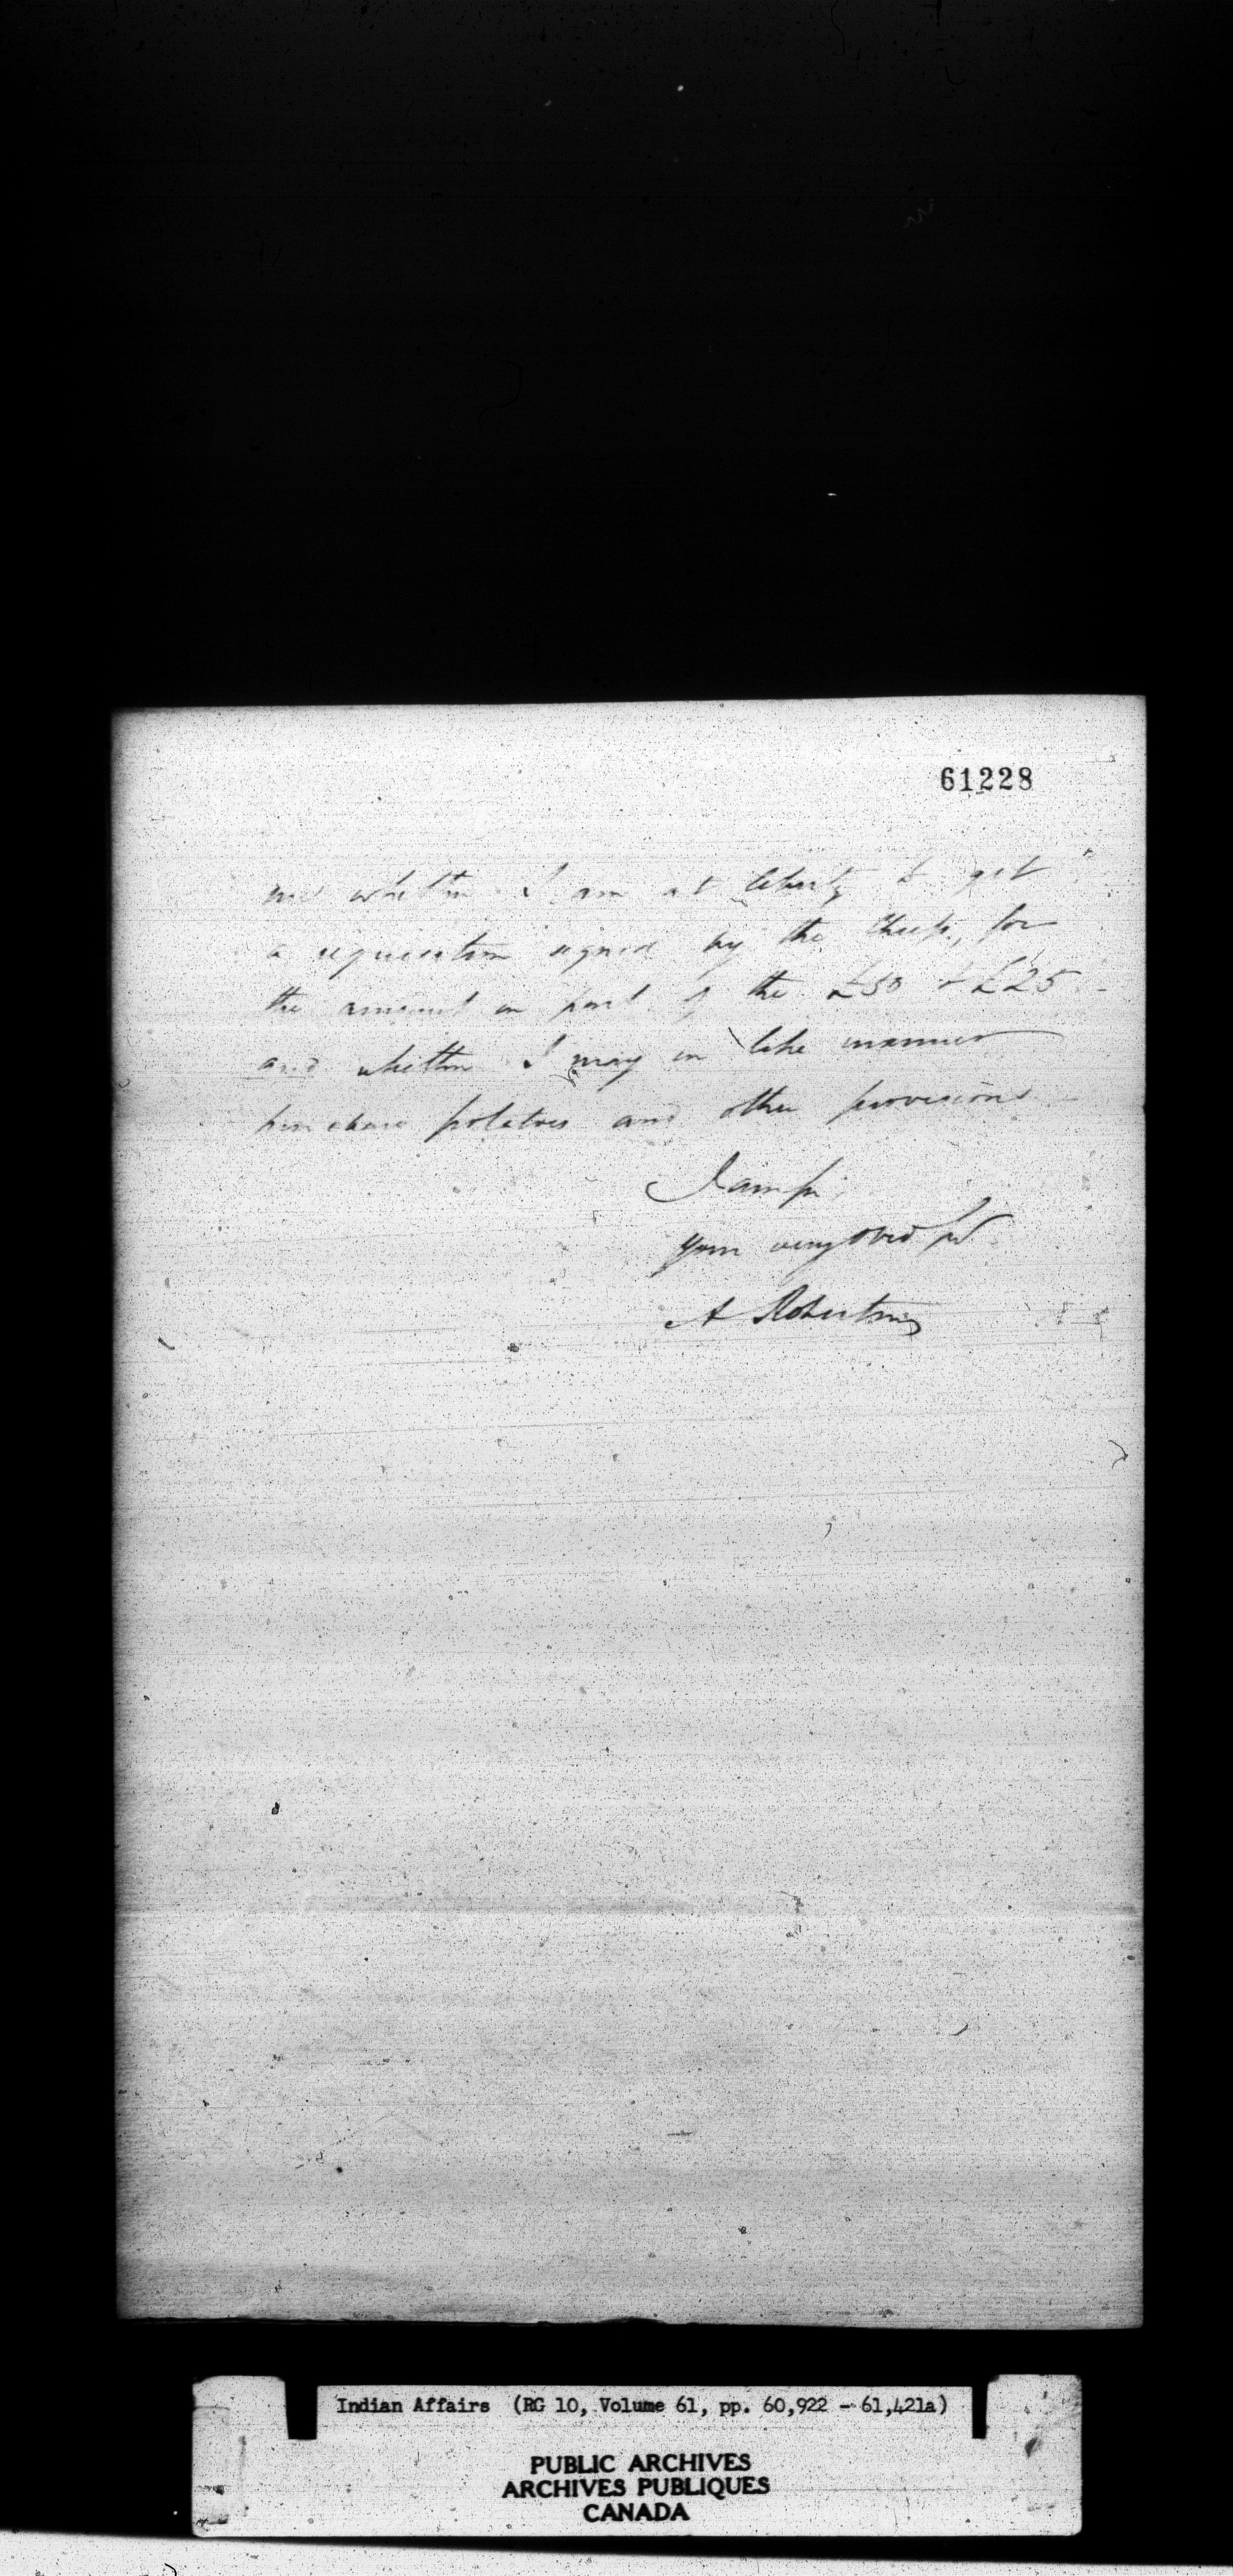 61228
me whether I am at liberty to get
a requisition signed by the Chiefs, for
the amount on part of the £50 & £25
and whether I may in like manner
purchase potatoes and other provisions
I am
your very
A Robertson
Indian Affairs (RG 10, Volume 61, pp. 60,922 - 61,421a)
PUBLIC ARCHIVES
ARCHIVES PUBLIQUES
CANADA